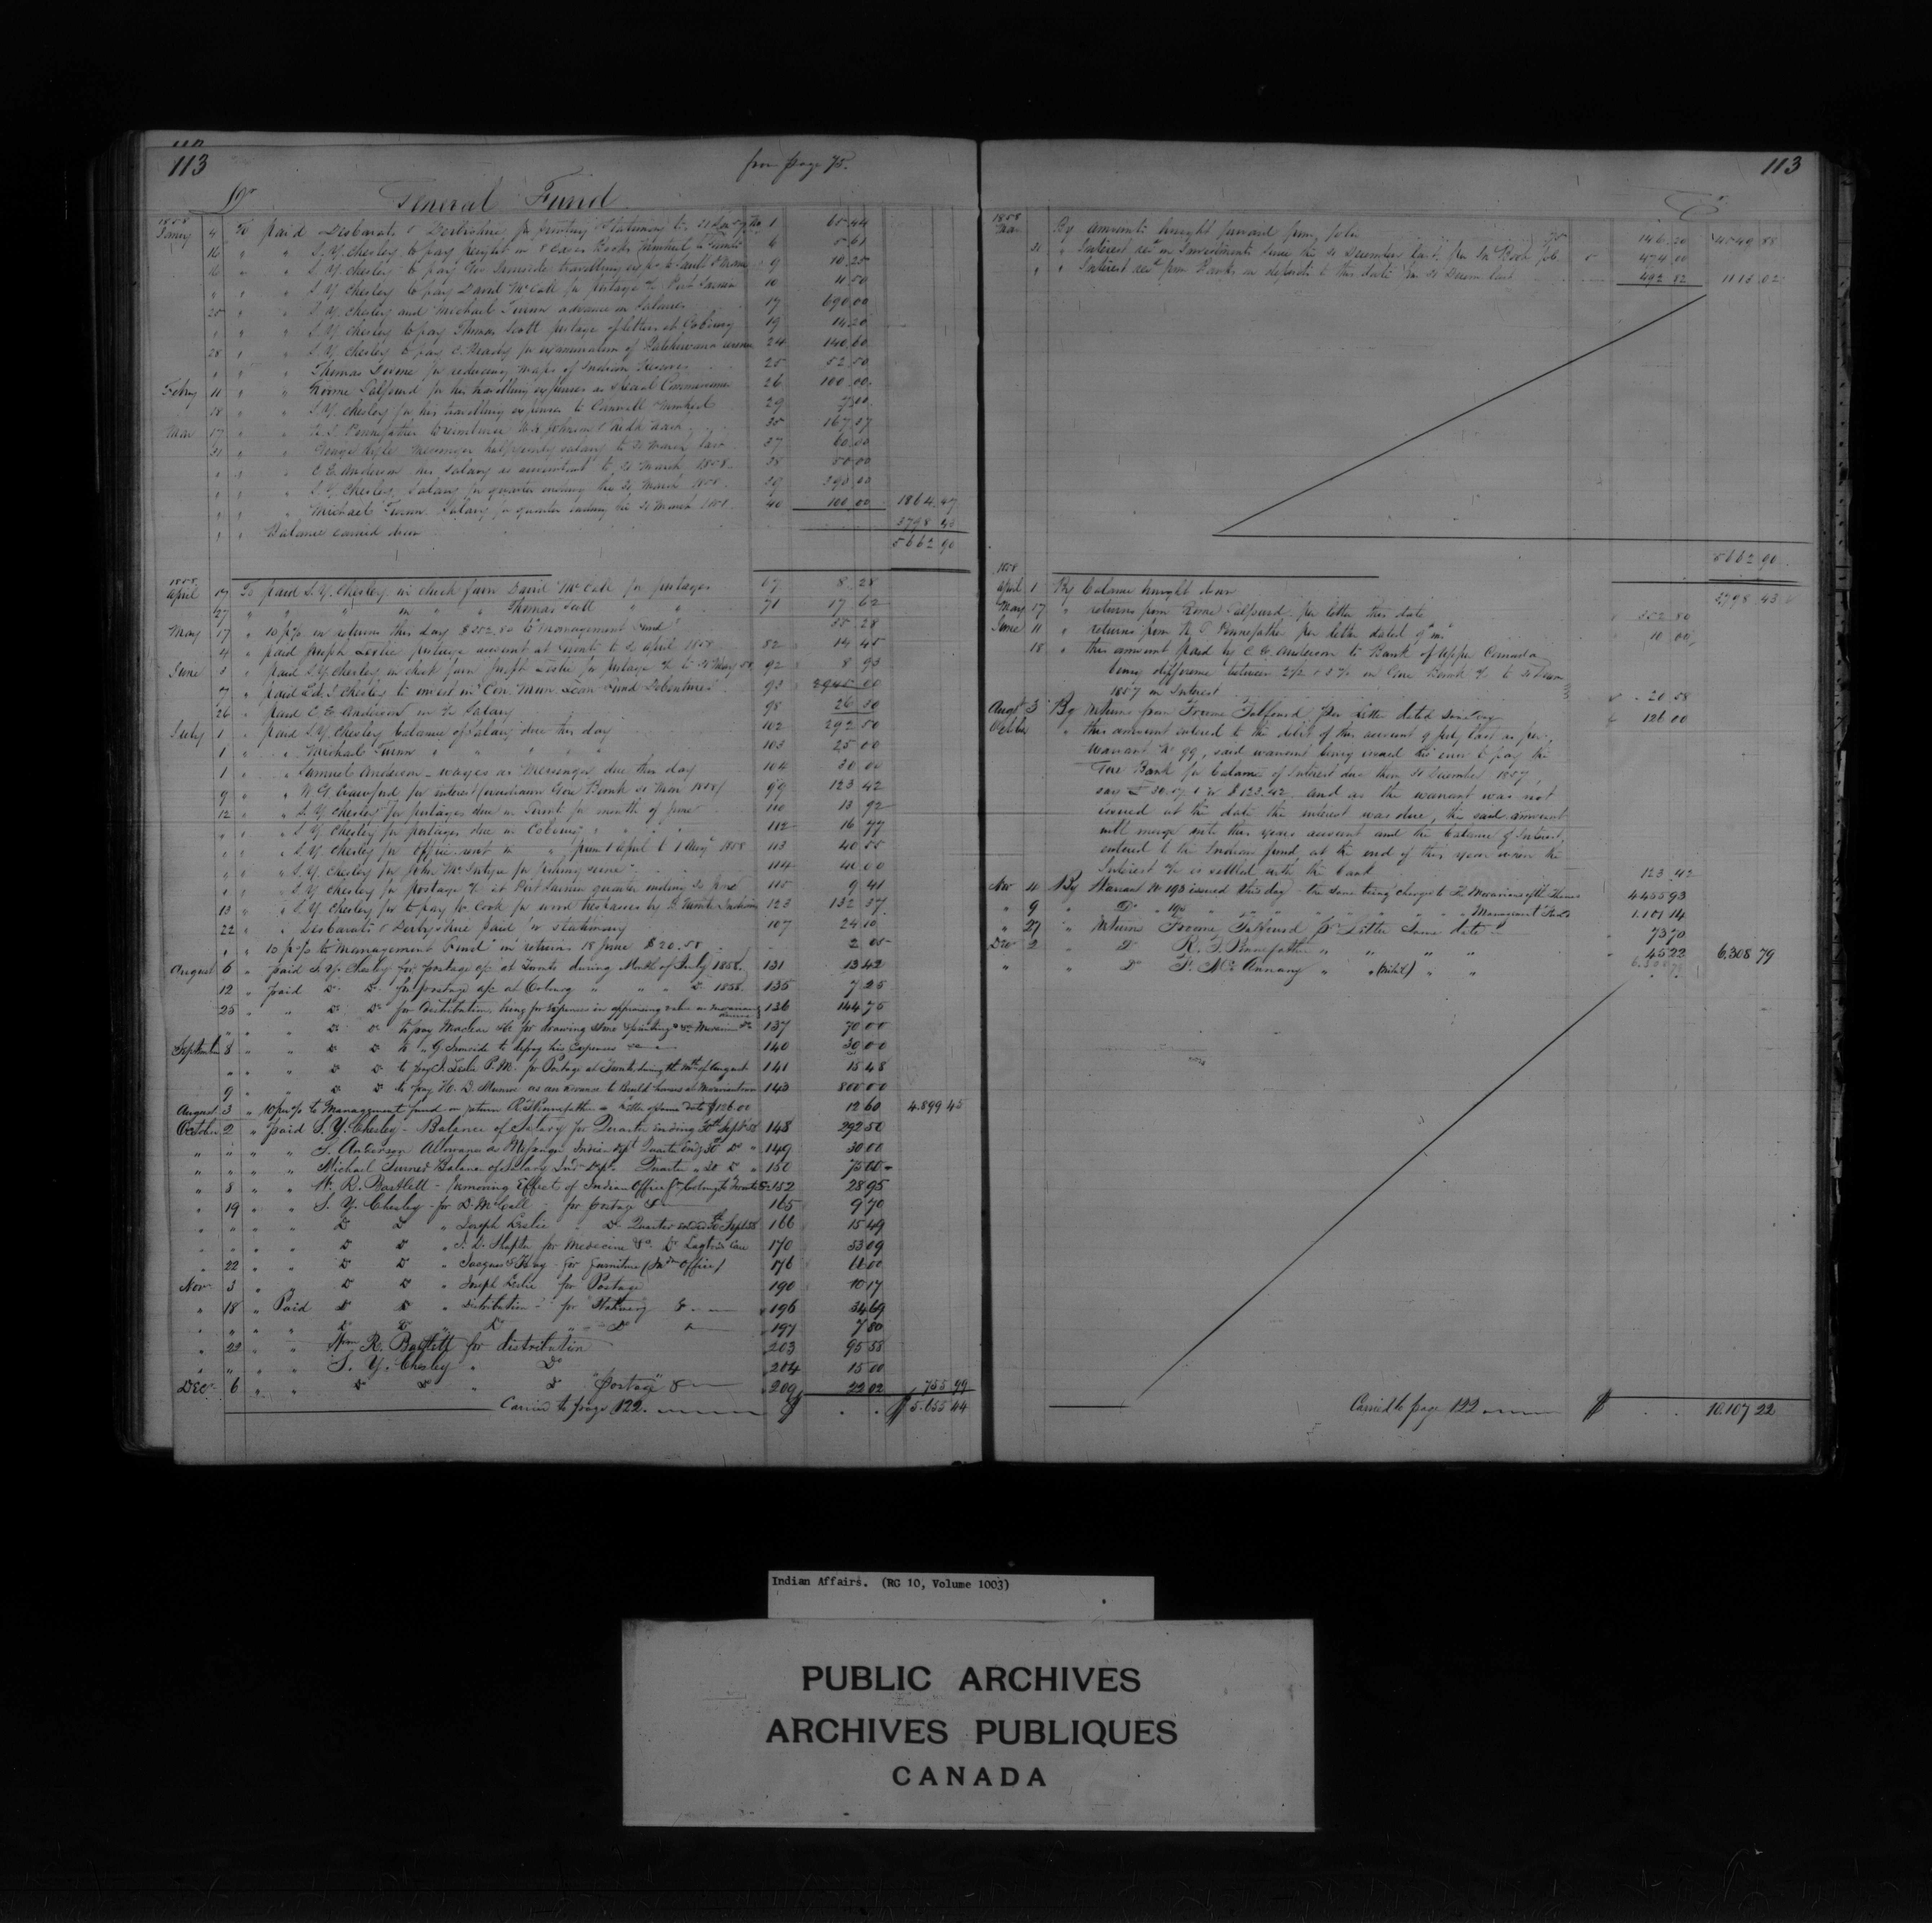 113
from page 75.
Dr General Fund
1858
Janry 4 To paid Desbarats & Derbishire for printing & Stationery to 31 1 65 44
16 " " S. Y. Chesley to pay freight on 8 cases Books 6 5 61
16 " " S. Y. Chesley to pay Geo Ironside travelling exps to Sault St Marie 9 10 25
" " " S. Y. Chesley to pay David McCall for postage &c Port Sarnia 10 11 50
25 " " S. Y. Chesley and Michael Turnor advance on Salaries 17 690 00
" " " S. Y. Chesley to pay Thomas Scott postage of letters at Cobourg 19 14 20
28 " " S. Y. Chesley to pay C. for examination of 24 140 60
" " " Thomas Devine for reducing maps of Indian Reserves 25 52 50
Febry 11 " " Froome Talfourd for his travelling expenses as Special Commissioner 26 100 00
18 " " S. Y. Chesley for his travelling expenses to Cornwall & Montreal 29
Mar 17 " " R. T. Pennefather 35 167 37
31 " " George Kyle Messenger half yearly salary to 31 March last 37 60 00
" " " C. E. Anderson his Salary as accountant to 31 March 1858 38 50 00
" " " S. Y. Chesley Salary for quarter ending this 31 March 1858 39
" " " Michael Turnor Salary for quarter ending this 31 March 1858 40 100 00 1864 47
" " Balance carried down 3798 43
5662 90
1858
April 17 To paid S. Y. Chesley in check favr David McCall for postages 67 8 28
27 " " " in " " Thomas Scott " " 71 17 62
May 17 " 10 pr % on returns this day $352.80 to "Management Fund" 35 28
4 " paid Joseph Leslie postage account at Toronto to 30 April 1858 82 14 45
June 3 " paid S. Y. Chesley in check favr Joseph Leslie for postage &c to 31 May 58 92 8 93
7 " paid S. Y. Chesley to invest in Con. Mun. Loan Fund Debentures 93 2945 00
26 " paid C. E. Anderson on Salary 98 26 50
July 1 " paid S. Y. Chesley balance of Salary due this day 102 292 50
1 " " Michael Turnor " " " " " 103 25 00
1 " " Samuel Anderson - wages as Messenger due this day 104 30 00
9 " " W. G. Crawford for interest Gore Bank 99 123 42
12 " " S. Y. Chesley for postages due in Toronto for month of June 110 13 92
" " " S. Y. Chesley for postages due in Cobourg " " " 112 16 77
" " " S. Y. Chesley for office rent in " from 1 April to 1 Augt 1858 113 40 55
" " " S. Y. Chesley for John McIntyre for fishing seine 114 40 00
" " " S. Y. Chesley for postage &c at Port Sarnia quarter ending 30 June 115 9 41
13 " " S. Y. Chesley for to pay Jas Cook for wood trespasses by 123 132 37
22 " " Desbarats & Derbyshire paid for stationery 107 24 10
" " 10 pr % to Management Fund on returns 18 June $20.58 2 05
August 6 " paid S. Y. Chesley for postage a/c at Toronto during Month of July 1858 131 13 42
12 " paid Do Do for postage a/c at Cobourg " " " Do 1858. 135 7 25
25 " " Do Do for Distribution, being for Expenses in appraising value on Moravian 136 144 75
" " " Do Do to pay Maclear &c for drawing Stone & printing 137 70 00
September 8 " " Do Do W. G. Ironside to defray his Expenses 140 30 00
" " " Do Do to pay J. Leslie P.M. for Postage at Toronto during the Mth of August 141 15 48
9 " " Do Do to pay H. D. Munroe as an advance to Build houses at Moraviantown 143 800 00
August 3 " 10 pr % to Management fund on return R. T. Pennefather Letter of same date $126.00 12 60 4.899 45
October 2 " paid S. Y. Chesley - Balance of Salary for Quarter Ending 30th Sept 58 148 292 50
" " " " S. Anderson Allowance as Messenger Indian Dept Quarter Endg 30 Do " 149 30 00
" " " " Michael Turnor Balance of Salary Indn Dept Quarter " 30 Do " 150 75 00
" 8 " " W. R. Bartlett - removing Effect of Indian Office fm Cobourg to Toronto 152 28 95
" 19 " " S. Y. Chesley - for D. McCall for postage 165 9 70
" " " " Do Do " Joseph Leslie " Do Quarter ended 30 Sept 58 166 15 49
" " " " Do Do " for Medicine 170 33 09
" 22 " " Do Do " Jacques & Hay - for furniture (Indn Office) 176 11 00
Nov 3 " " Do Do " Joseph Leslie for Postage 190 10 17
" 18 " Paid Do Do " Distribution " for "Stationery" 196 34 69
" " " " Do Do " Do " Do 197 7 80
" 22 " " Wm R. Bartlett for distribution 203 95 58
" " " " S. Y. Chesley " Do 204 15 00
Dec 6 " " Do Do " Do "Postage" 209 22 02 755 99
Carried to page 122. $ . . $ 5.655 44
113
Cr
1858
Mar By amounts brought forward from folio 75 146 20 4549 88
31 " Interest acct on Investments since the 31 December last per In Book fol 474 00
" " Interest acct from Banks on deposits to this date fm 31 Decem last 492 82 1113 02
5662 90
1858
April 1 By balance brought down 3798 43
May 17 " returns from Frome Talfourd per letter this date 352 80
June 11 " returns from R. T. Pennefather per letter dated 9th ins 10 00
18 " this amount paid by C. E. Anderson to Bank of Upper Canada
being difference between 2½ & 3 % on Gore Bank &c to 31 Decem
1857 on Interest 20 58
Augt 3 By returns from Froome Talfourd per Letter dated 126 00
October " this amount entered to the debit of this account 9 July last as per
Warrant No 99, said warrant being issued this year to pay the
Gore Bank for balance of Interest due them 31 December 1857,
say £30.17.1 or $123.42 and as the warrant was not
issued at the date the interest was due, the said amount
will merge into this years account and the balance of Interest,
entered to the Indian fund at the end of this year when the
Interest &c is settled with the bank 123 42
Nov 4 By Warrant No 193 issued this day - the same being charged to The Moravians of the Thames 4455 93
" 9 " Do " 195 " " " " " " " " Management Fund 1.101 14
" 27 " Return Froome Talfourd pr Letter same date 73 70
Dec 2 " Do R. T. Pennefather " " " " 45 22 6,308 79
" " Do F. McAnnany " " "
Carried to page 122 $ . . 10.107 22
Indian Affairs. (RG 10, Volume 1003)
PUBLIC ARCHIVES
ARCHIVES PUBLIQUES
CANADA